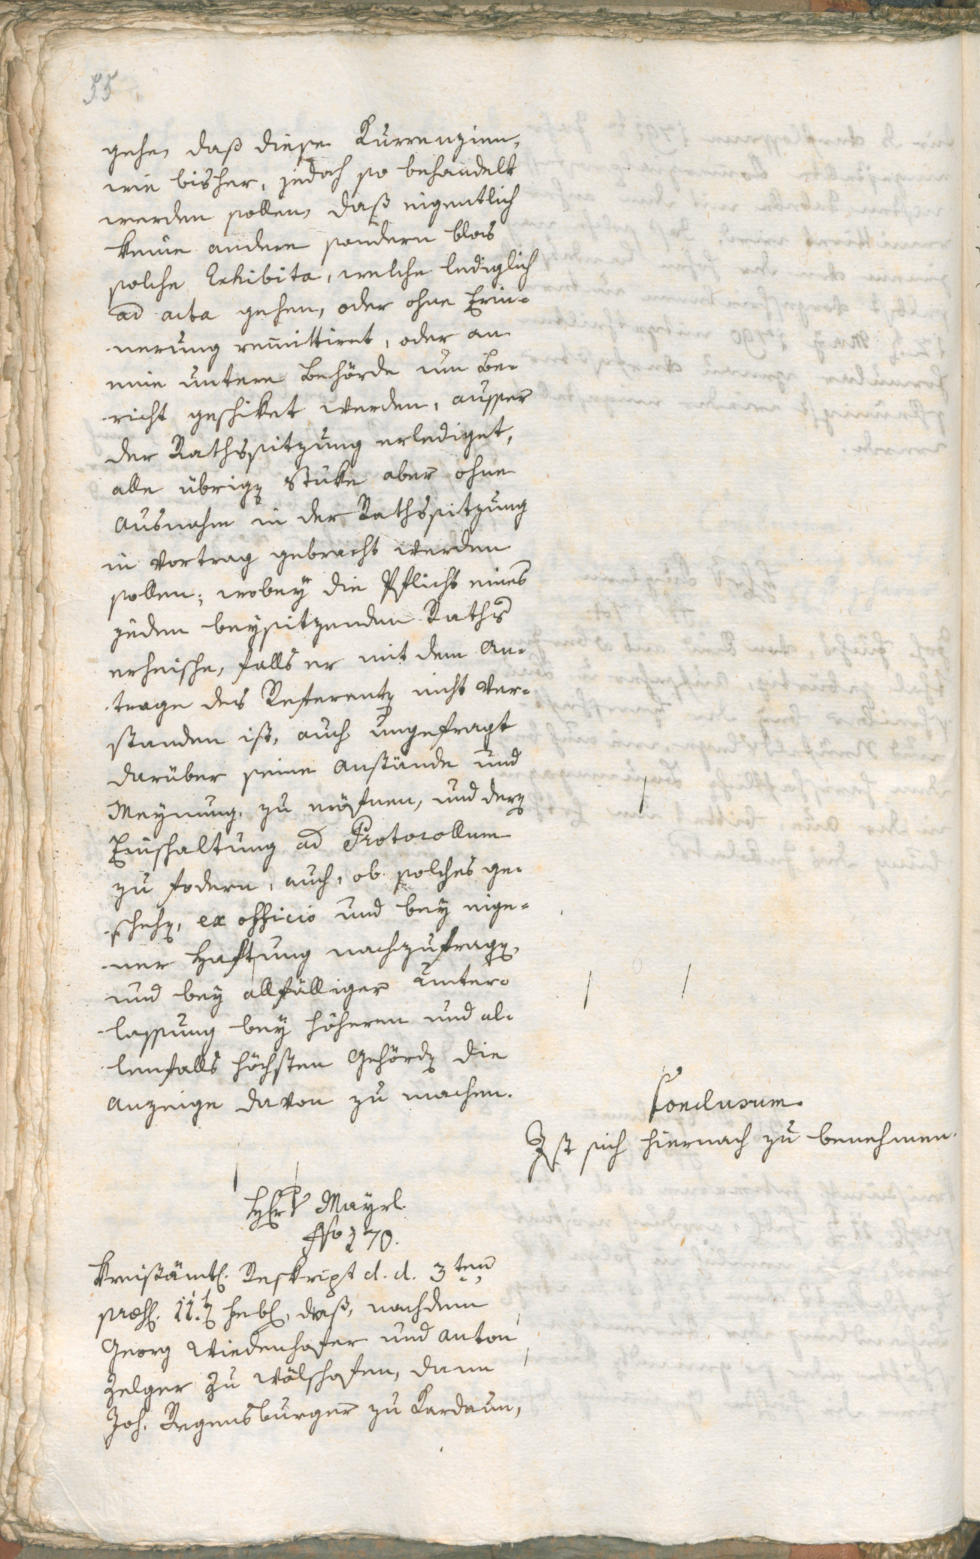 55
gehe, daß diese Kurrenzien,
wie bisher, jedoch so behandelt
werden sollen, daß eigentlich
keine andere sondern blos
solche Exhibita, welche lediglich
ad acta gehen, oder ohne Erin-
nerung remittiret, oder an
eine untere Behörde um Be-
richt geschiket werden, ausser
der Rathssitzung erlediget,
alle übrigen Stüke aber ohne
Ausnahm in der Rathssitzung
in Vortrag gebracht werden
sollen; wobey die Pflicht eines
jeden beysitzenden Raths
erheische, falls er mit dem An-
trage des Referenten nicht ver-
standen ist, auch ungefragt
darüber seine Anstände und
Meynung zu eröfnen, und deren
Einschaltung ad Protocollum
zu fodern, auch, ob solches ge-
schehen, ex officio und bey eige-
ner Haftung nachzufragen,
und bey allfälliger Unter-
lassung bey höheren und al-
lenfalls höchsten Behörden die
Anzeige davon zu machen.
Conclusum
Ist sich hiernach zu benehmen.
Herr Mayrl
No 270.
Kreisämtl. Reskript d. d. 3ten
praes. 11. t hebl, daß, nachdem
Georg Wiedenhofer und Anton
Zelger zu Wälschofen, dann
Joh. Regensburger zu Kardaun,